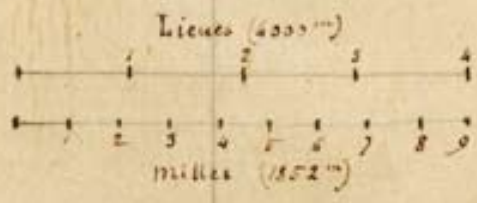 Lieues (4000 m)
1 2 3 4
1 2 3 4 5 6 7 8 9
milles (1852 m)